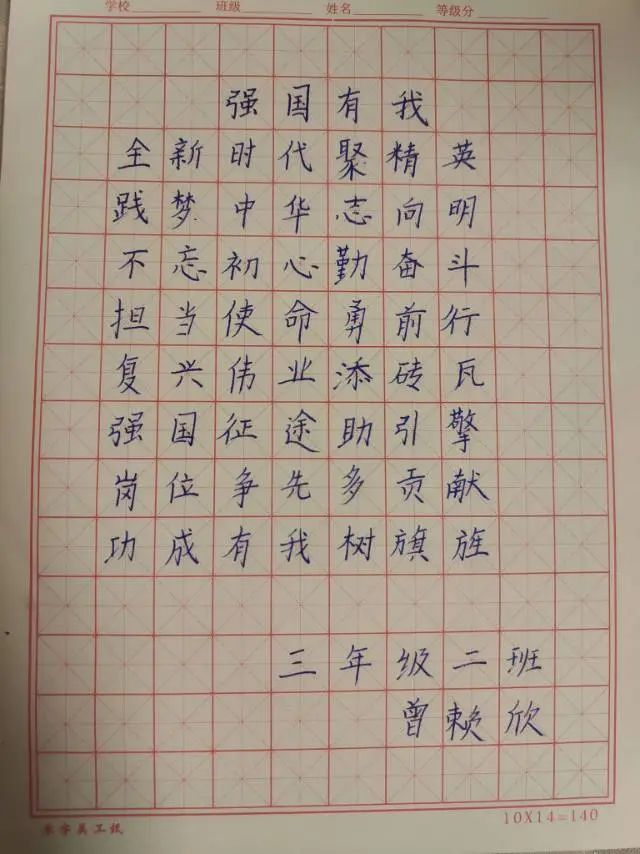 学校 班级 姓名 等级分
强国有我
全新时代聚精英
践梦中华志向明
不忘初心勤奋斗
担当使命勇前行
复兴伟业添砖瓦
强国征途助引擎
岗位争先多贡献
功成有我树旗旌
三年级二班
曾赖欣
米字美工纸 10X14=140